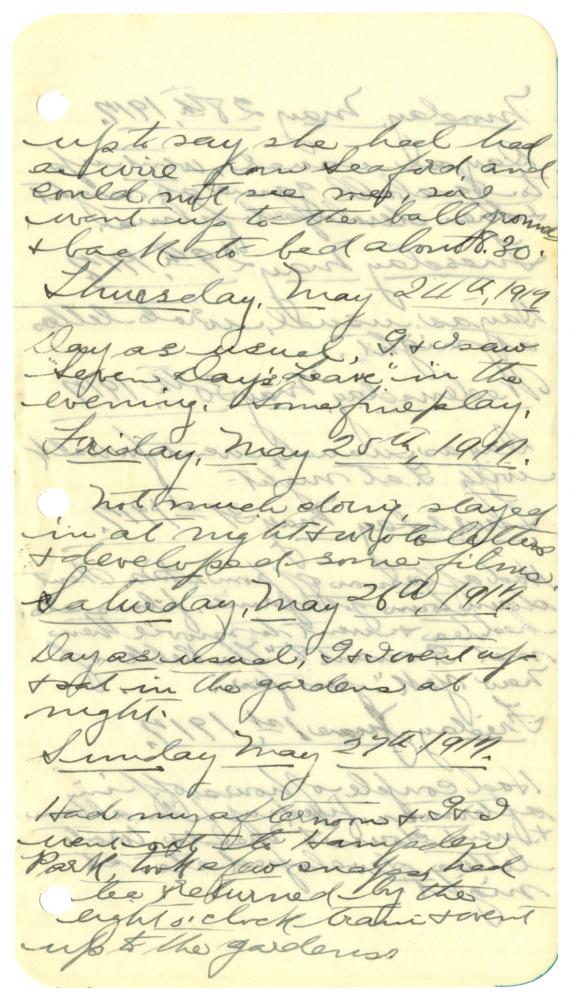 up to say she had had
a wire from Seaford, and
could not see me, so I
went up to the ball room
& back to bed about 8.30.
Thursday, May 24th, 1917
Day as usual, I. & I saw
"Seven Day's Leave", in the
evening. Some fine play.
Friday, May 25th, 1917.
Not much doing, stayed
in at night & wrote letters
& developed some films.
Saturday, May 26th, 1917.
Day as usual, I. & I went up
& sat in the gardens at
night.
Sunday May 27th 1917.
Had my afternoon & I. & I
went out to Hampden
Park, took a few snaps, had
tea & returned by the
eight o'clock train & went
up to the gardens.